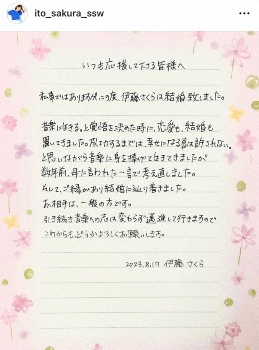 ito_sakura_ssw
いつも応援して下さる皆様へ
私事ではありますが、この度、伊藤さくらは結婚致しました。
音楽に生きる。と覚悟を決めた時に、恋愛も、結婚も
置いてきました。成功するまでは、幸せになる事は許されない。
と思いながら音楽に身を捧げて生きてきましたが
数年前、母に言われた一言で考え直しました。
そして、ご縁があり結婚に辿り着きました。
お相手は、一般の方です。
引き続き音楽への道は変わらず邁進して行きますので
これからも、どうかよろしくお願いします。
2023.8.17 伊藤 さくら